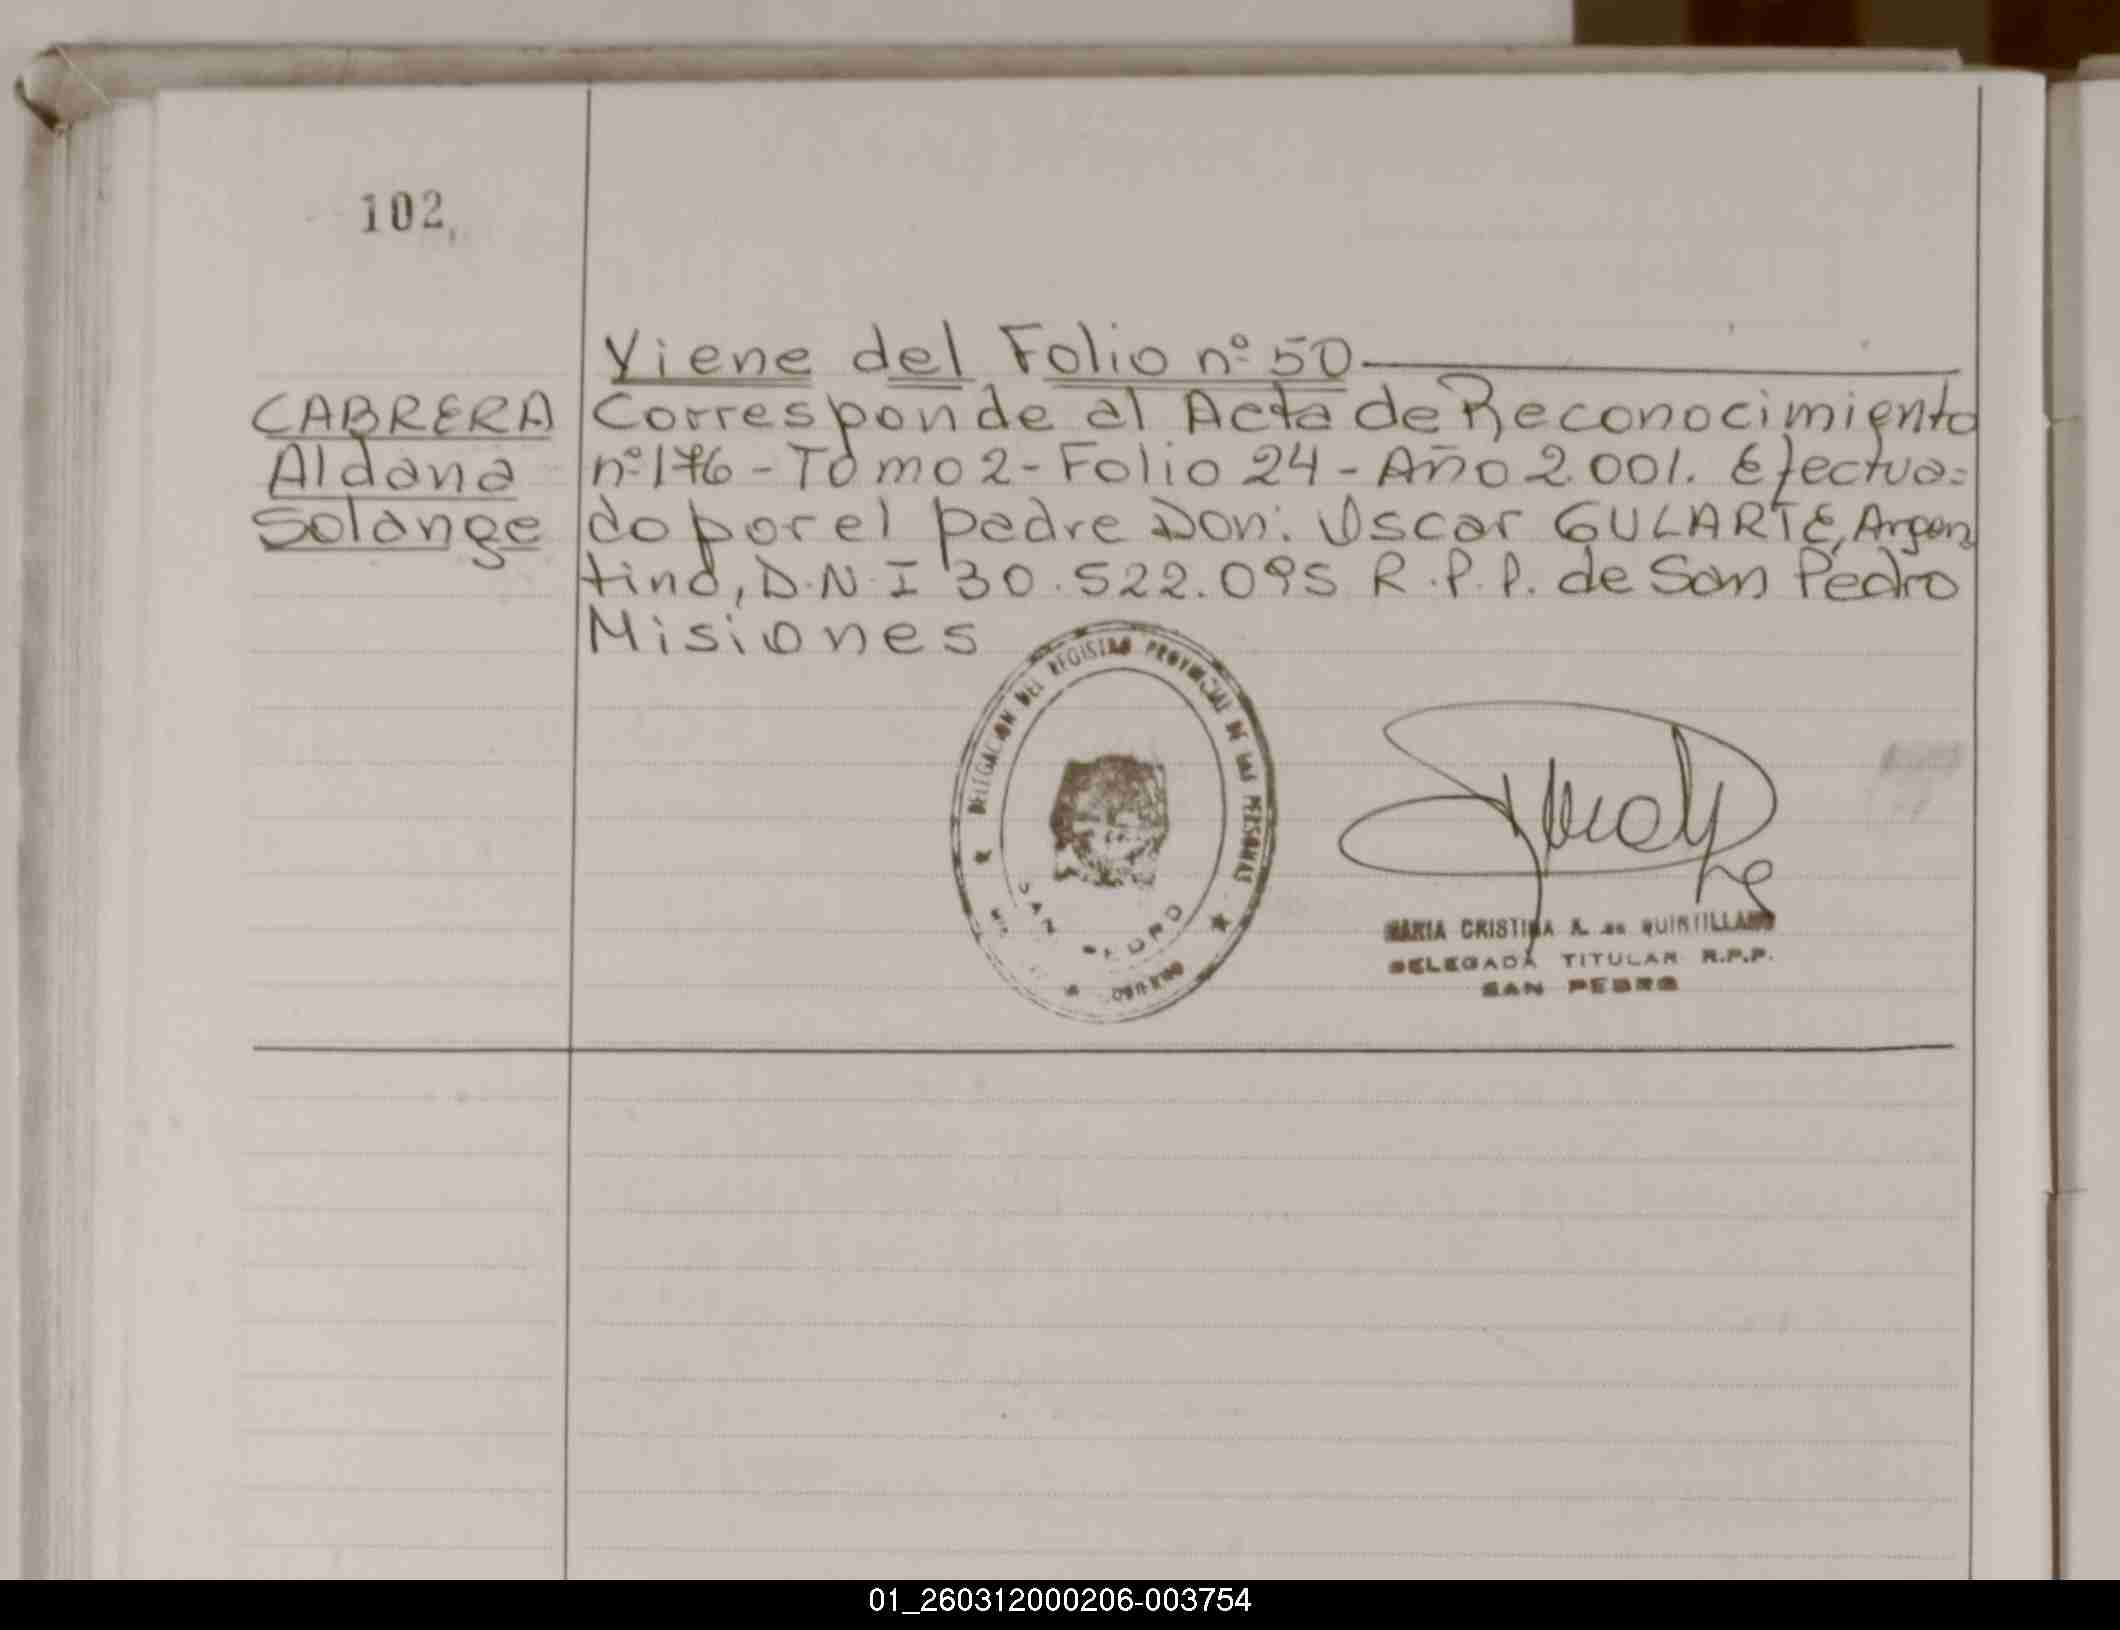 102
Viene del Folio nº 50
CABRERA
Aldana
Solange
Corresponde al Acta de Reconocimiento
nº 176 - Tomo 2 - Folio 24 - Año 2.001. Efectua=
do por el padre Don: Oscar GULARTE, Argen
tino, D.N.I 30.522.095 R.P.P. de San Pedro
Misiones
DELEGACION DEL REGISTRO PROVINCIAL DE LAS PERSONAS
SAN PEDRO
MARIA CRISTINA A. de QUINTILLANO
DELEGADA TITULAR R.P.P.
SAN PEDRO
01_260312000206-003754